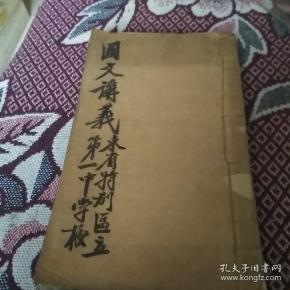 國文講義
東省特别區立
第一中学校
孔夫子旧书网